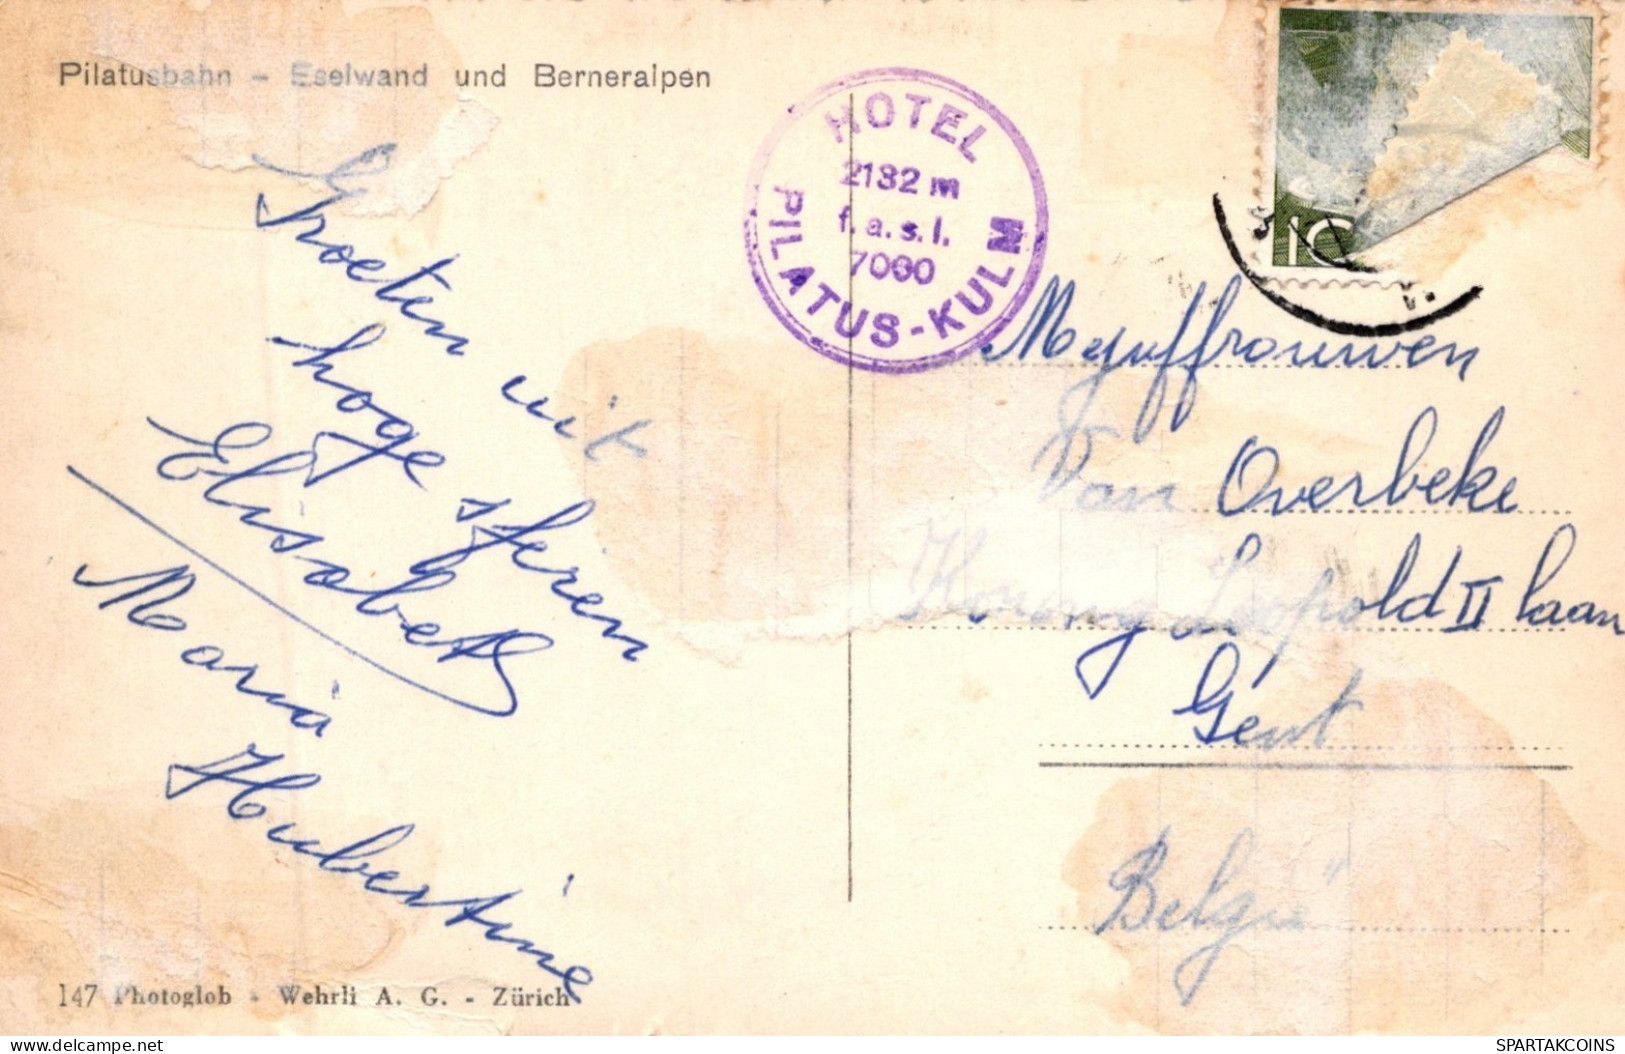 Pilatusbahn - Eselwand und Berneralpen
HOTEL
2132 m
f. a. s. l.
7000
PILATUS-KULM
10
Groeten uit
hoge sferen
Elisabeth
Maria
Hubertine
Mejuffrouwen
Van Overbeke
Koning Leopold II laan
Gent
België
147 Photoglob - Wehrli A. G. - Zürich
SPARTAKCOINS
WWW.DELCAMPE.NET